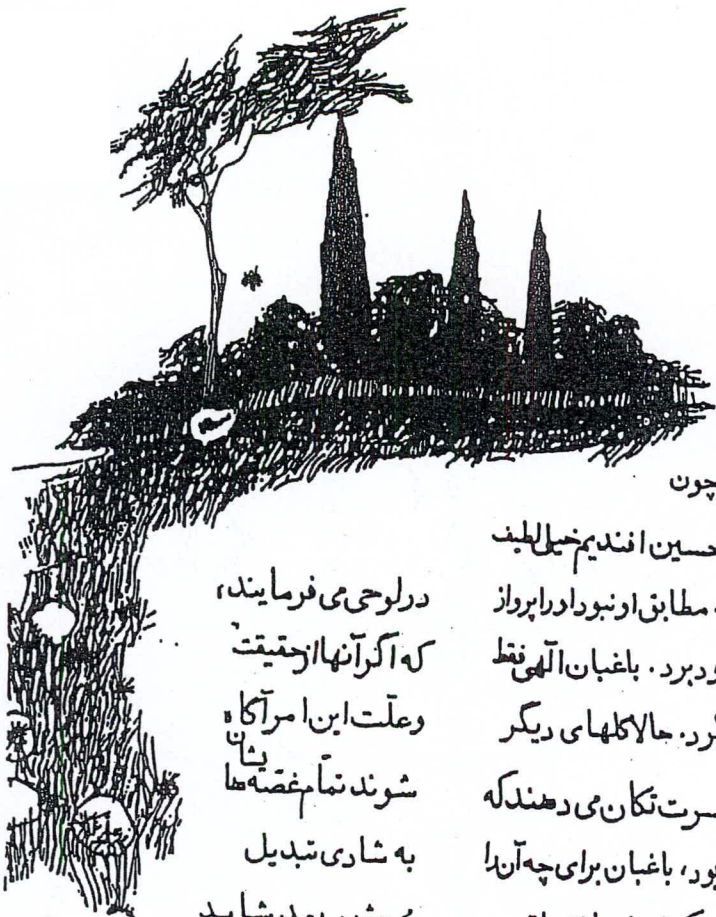 چون
حسین افندیم خیلی لطیف
مطابق او نبود او را پرواز
برد. باغبان الهی فقط
کرد. حالا گلهای دیگر
تکان می دهند که
بود، باغبان برای چه آن را
در لوحی می فرمایند،
که اگر آنها از حقیقت
و علّت این امر آگاه
شوند تمام غصّه هایشان
به شادی تبدیل